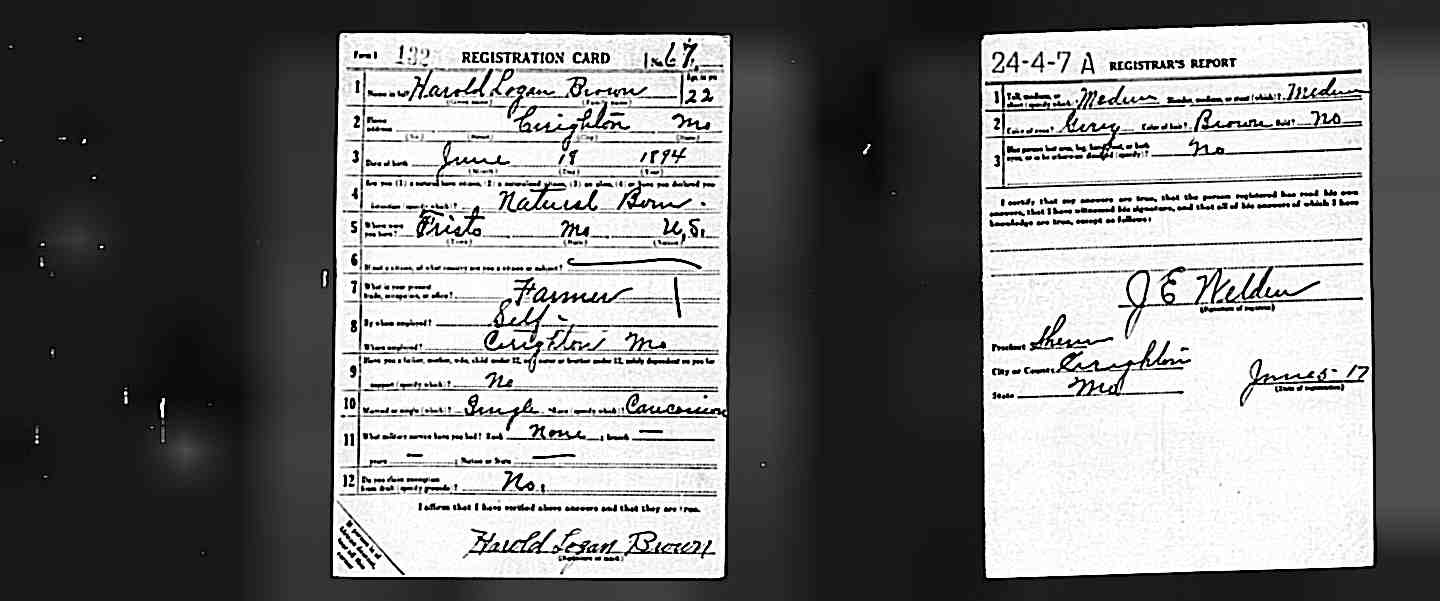 Form 1 132 REGISTRATION CARD No. 67
1 Name in full Harold Logan Brown Age, in yrs 22
(Given name) (Family name)
2 Home address Creighton Mo
(No.) (Street) (City) (State)
3 Date of birth June 18 1894
(Month) (Day) (Year)
4 Are you (1) a natural born citizen, (2) a naturalized citizen, (3) an alien, (4) or have you declared your
intention (specify which)? Natural Born.
5 Where were you born? Fristo Mo U.S.
(Town) (State) (Nation)
6 If not a citizen, of what country are you a citizen or subject?
7 What is your present trade, occupation, or office? Farmer
8 By whom employed? Self
Where employed? Creighton Mo
9 Have you a father, mother, wife, child under 12, or a sister or brother under 12, solely dependent on you for
support (specify which)? No
10 Married or single (which)? Single Race (specify which)? Caucasion
11 What military service have you had? Rank None ; branch —
years — ; Nation or State —
12 Do you claim exemption from draft (specify grounds)? No.
I affirm that I have verified above answers and that they are true.
Harold Logan Brown
(Signature or mark)
24-4-7 A REGISTRAR'S REPORT
1 Tall, medium, or short (specify which)? Medium Slender, medium, or stout (which)? Medium
2 Color of eyes? Grey Color of hair? Brown Bald? No
3 Has person lost arm, leg, hand, foot, or both eyes, or is he otherwise disabled (specify)? No
I certify that my answers are true, that the person registered has read his own
answers, that I have witnessed his signature, and that all of his answers of which I have
knowledge are true, except as follows:
J E Welden
(Signature of registrar)
Precinct
City or County Creighton
State Mo
June 5-17
(Date of registration)